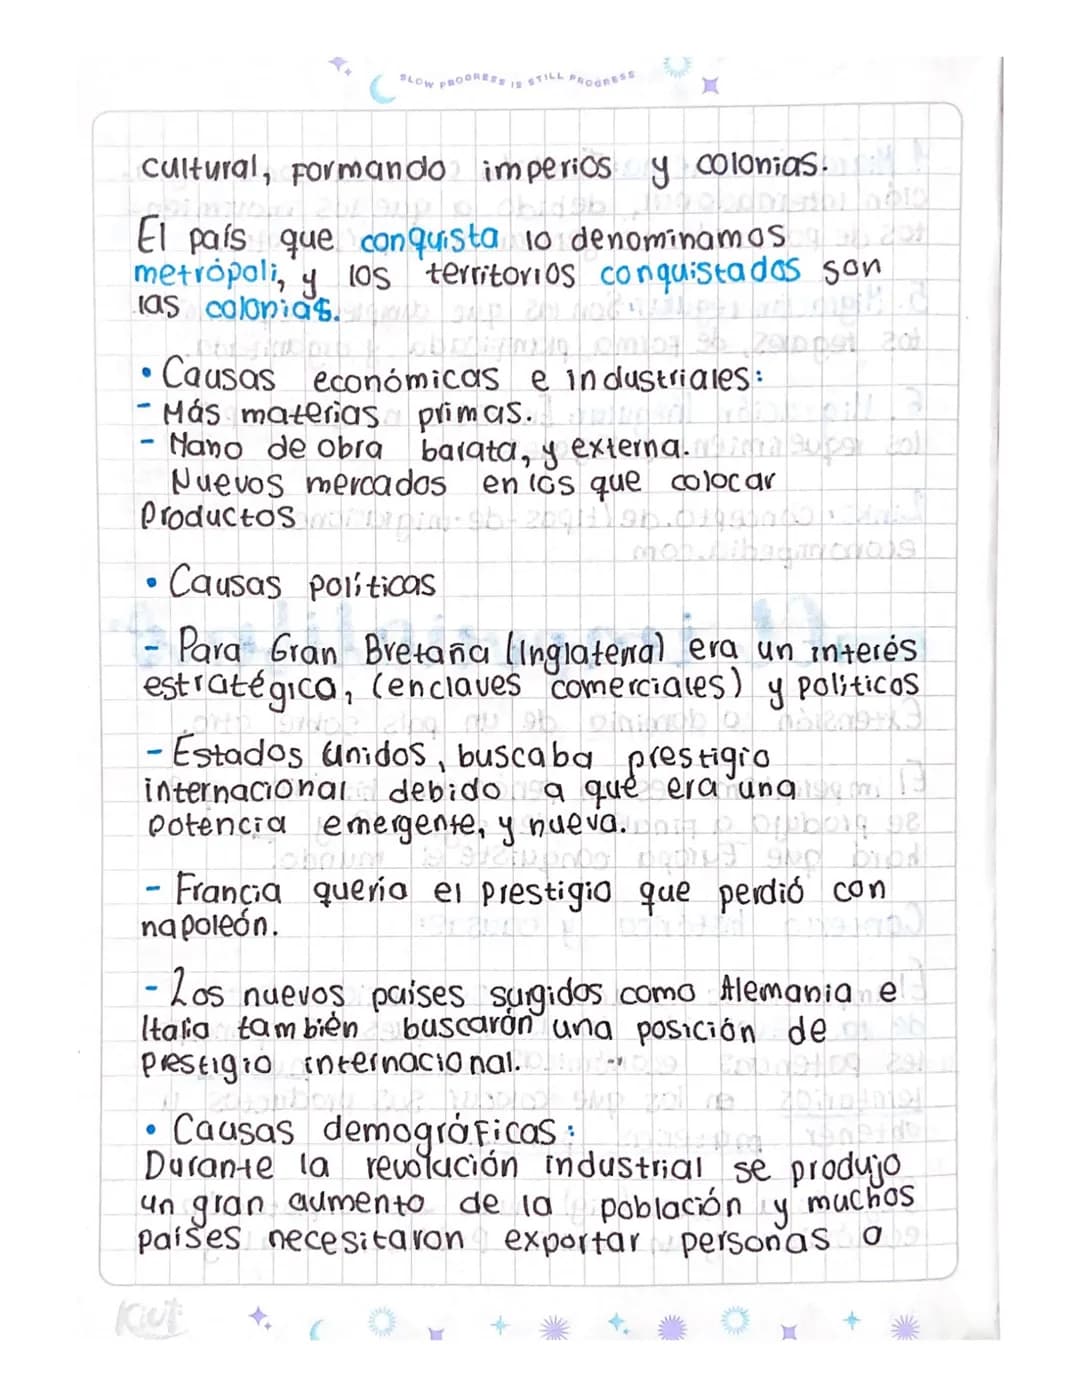 SLOW PROGRESS IS STILL PROGRESS
cultural, formando imperios y colonias.
El país que conquista lo denominamos
metrópoli, y los territorios conquistados son
las colonias.
• Causas económicas e industriales:
- Más materias primas.
- Mano de obra barata, y externa.
Nuevos mercados en los que colocar
Productos
• Causas políticas
- Para Gran Bretaña (Inglaterra) era un interés
estratégica, (enclaves comerciales) y políticos
- Estados unidos, buscaba prestigio
internacional debido a que era una
potencia emergente, y nueva.
- Francia quería el prestigio que perdió con
napoleón.
- Los nuevos paises surgidos como Alemania e
Italia también buscarón una posición de
prestigio internacional.
• Causas demográficas:
Durante la revolución industrial se produjo
un gran aumento de la población y muchos
países necesitaron exportar personas a
Kiut